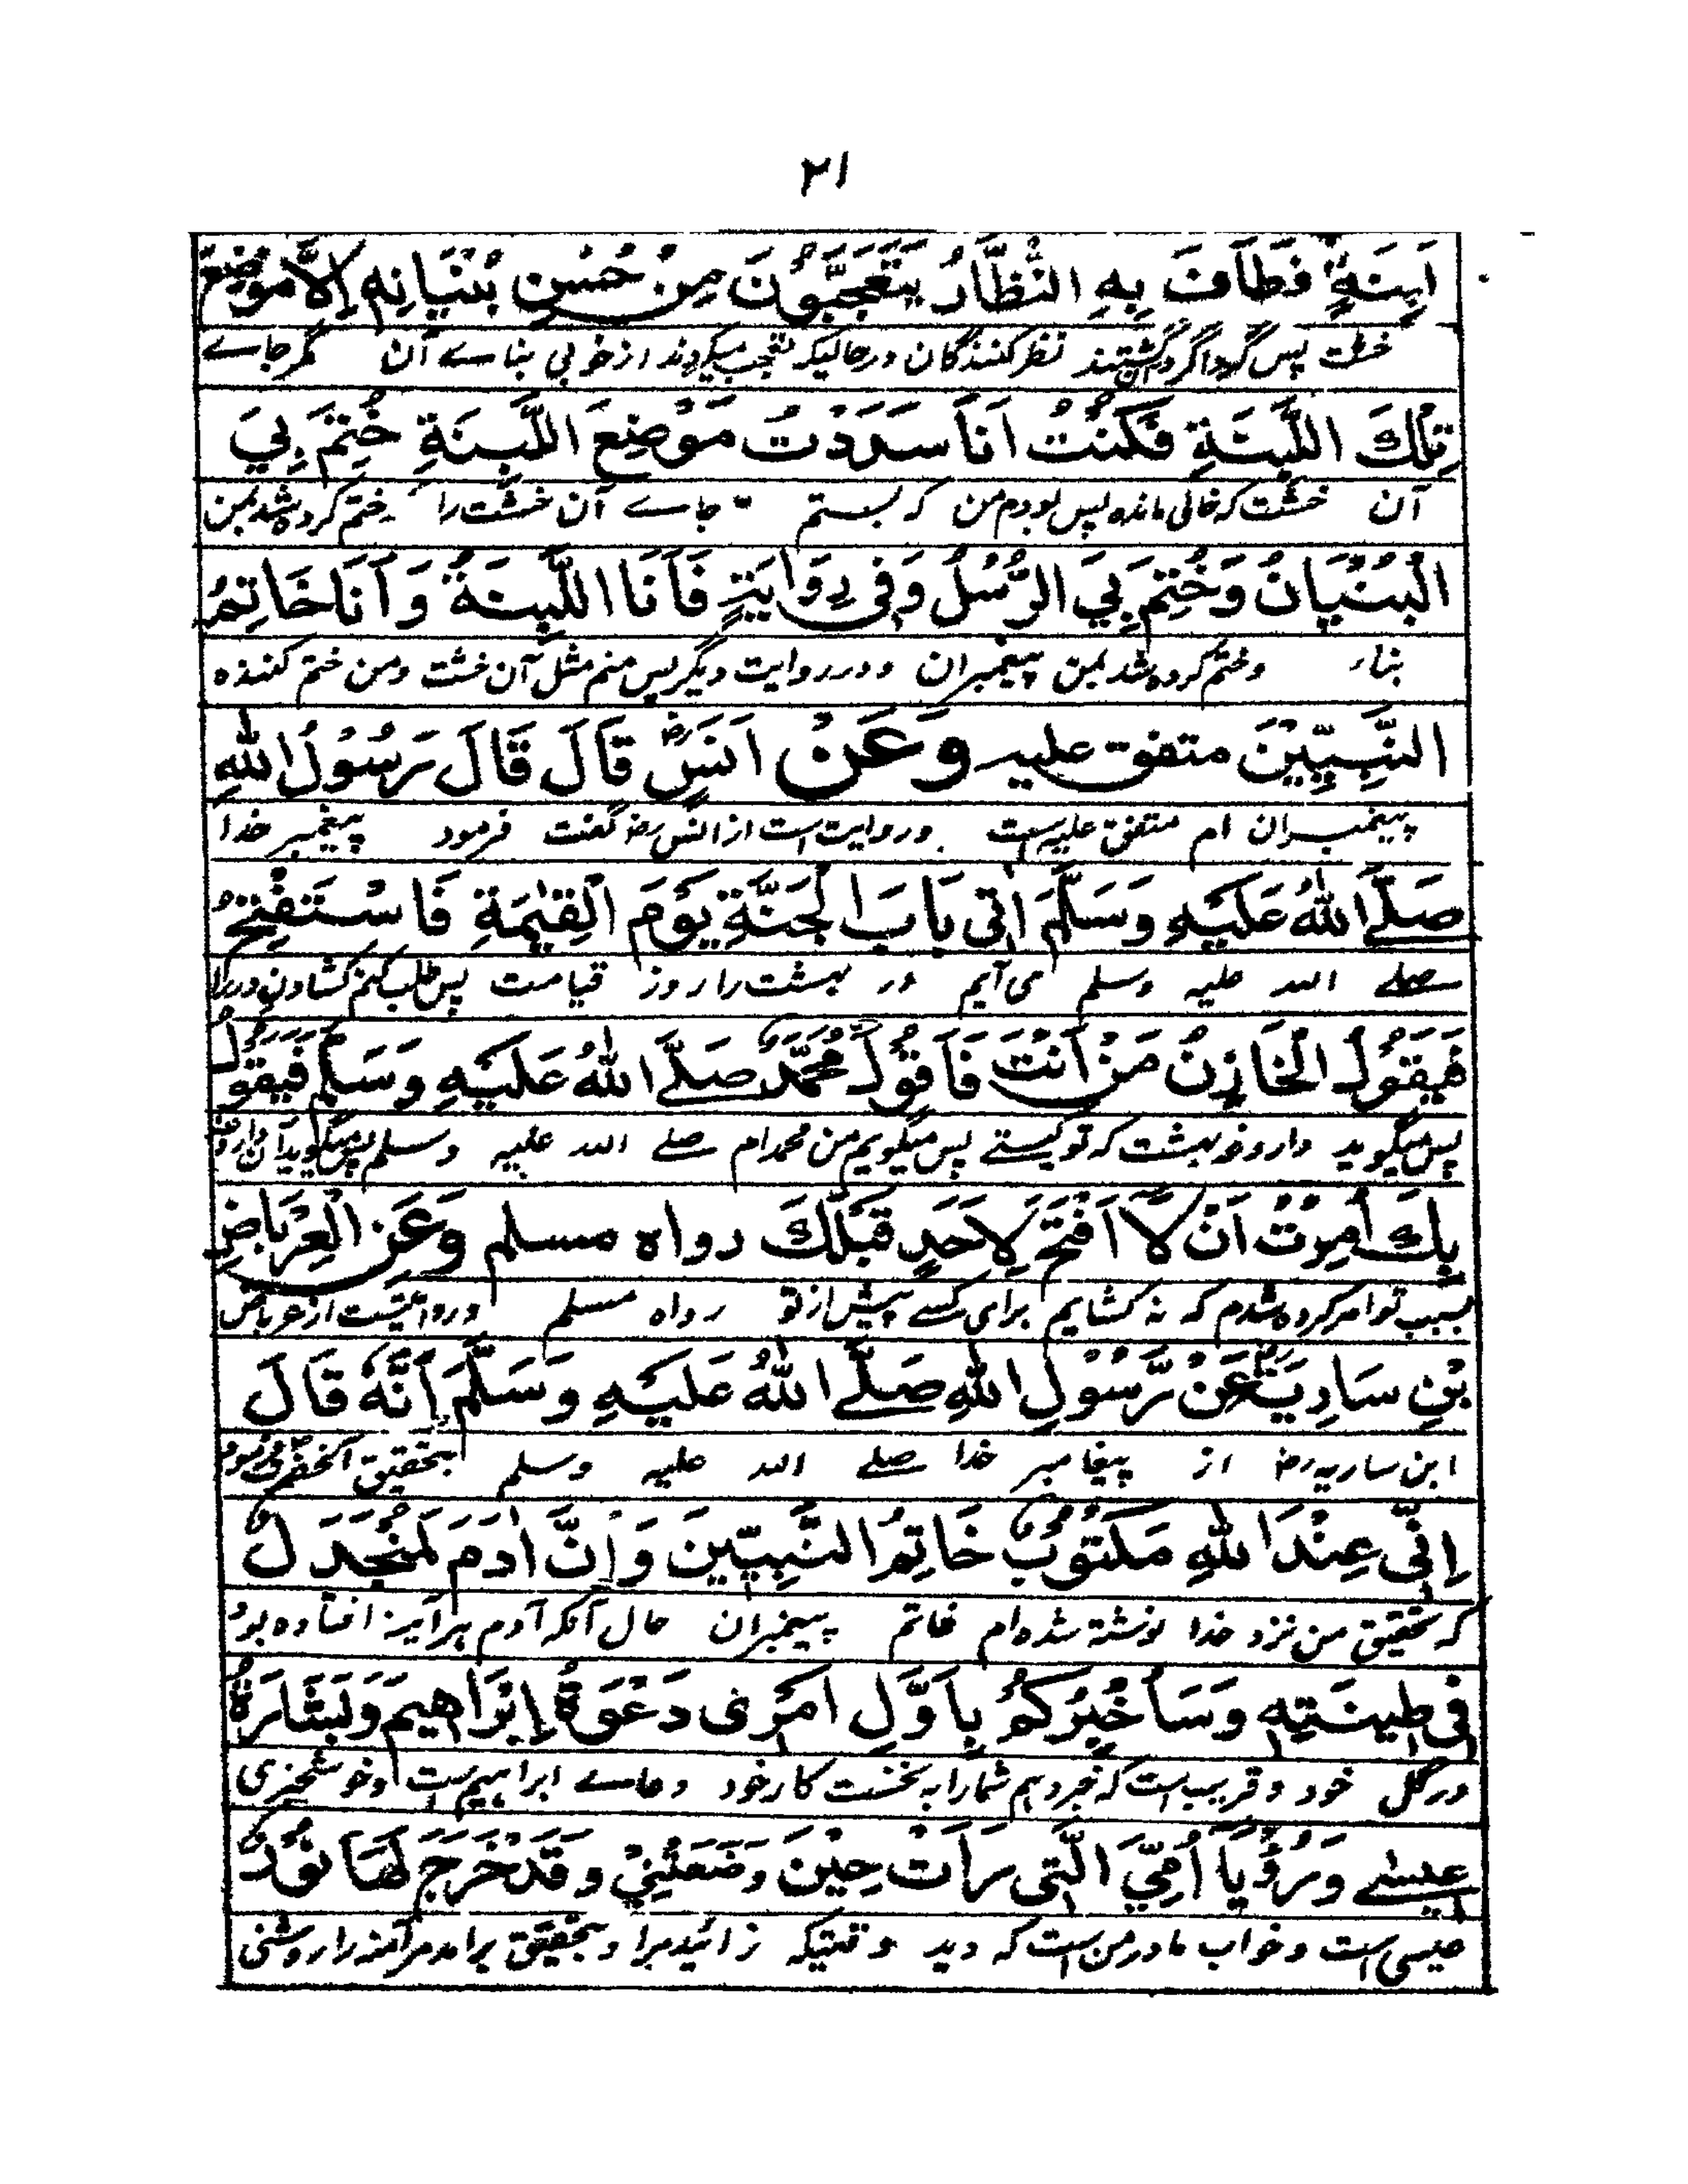 ۲۱
لَبِنَةٍ فَطَافَ بِهِ النُّظَّارُ يَتَعَجَّبُوْنَ مِنْ حُسْنِ بُنْيَانِهِ إِلَّا مَوْضِعَ
خشت پس گرداگرد گشتند نظر کنندگان در حالیکه تعجب میکردند از خوبی بناے آن مگر جاے
تِلْكَ اللَّبِنَةِ فَكُنْتُ اَنَا سَدَدْتُ مَوْضِعَ اللَّبِنَةِ خُتِمَ بِيَ
آن خشت که خالی مانده پس بودم من که بستم جاے آن خشت را ختم کرده شد بمن
الْبُنْيَانُ وَخُتِمَ بِيَ الرُّسُلُ وَفِي رِوَايَةٍ فَاَنَا اللَّبِنَةُ وَاَنَا خَاتِمُ
بناء وختم کرده شد بمن پیغمبران ودر روایت دیگر پس منم مثل آن خشت ومن ختم کننده
النَّبِيّيْنَ متفق عليه وَعَنْ اَنَسٍ رض قَالَ قَالَ رَسُوْلُ اللهِ
پیغمبران ام متفق علیه است وروایت است از انس رض گفت فرمود پیغمبر خدا
صَلَّے اللهُ عَلَيْهِ وَسَلَّمَ اٰتِى بَابَ الْجَنَّةِ يَوْمَ الْقِيٰمَةِ فَاسْتَفْتِحُ
صلے الله علیه وسلم می آیم در بهشت را روز قیامت پس طلب کنم کشادن در را
فَيَقُوْلُ الْخَازِنُ مَنْ اَنْتَ فَاَقُوْلُ مُحَمَّدٌ صَلَّے اللهُ عَلَيْهِ وَسَلَّمَ فَيَقُوْلُ
پس میگوید داروغه بهشت که تو کیستے پس میگویم من محمد ام صلے الله علیه وسلم پس میگوید آن داروغه
بِكَ اُمِرْتُ اَنْ لَّا اَفْتَحَ لِاَحَدٍ قَبْلَكَ رواه مسلم وَعَنِ الْعِرْبَاضِ
بسبب تو امر کرده شدم که نه کشایم برای کسے پیش از تو رواه مسلم وروایتست از عرباض
بْنِ سَارِيَةَ رض عَنْ رَّسُوْلِ اللهِ صَلَّے اللهُ عَلَيْهِ وَسَلَّمَ اَنَّهٗ قَالَ
ابن ساریه رض از پیغامبر خدا صلے الله علیه وسلم بتحقیق آنحضرت فرمود
اِنِّى عِنْدَ اللهِ مَكْتُوْبٌ خَاتِمُ النَّبِيّيْنَ وَاِنَّ اٰدَمَ لَمُنْجَدِلٌ
که تحقیق من نزد خدا نوشته شده ام خاتم پیغمبران حال آنکه آدم هر آینه افتاده بود
فِى طِيْنَتِهٖ وَسَاُخْبِرُكُمْ بِاَوَّلِ اَمْرِى دَعْوَةُ اِبْرَاهِيْمَ وَبَشَارَةُ
در گل خود وقریب است که خبر دهم شما را به نخست کار خود دعاے ابراهیم است وخوشخبری
عِيْسٰے وَرُؤْيَا اُمِّيَ الَّتِى رَاَتْ حِيْنَ وَضَعَتْنِيْ وَقَدْ خَرَجَ لَهَا نُوْرٌ
عیسی است وخواب مادر من است که دید وقتیکه زائید مرا وبتحقیق برامد مر آمنه را روشنی